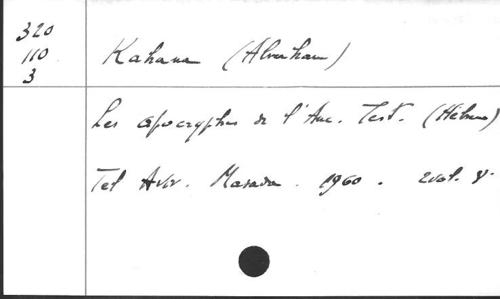 320
110
3
Kahana (Abraham)
Les apocryphes de l'Anc. Test. (Hébreu)
Tel Aviv. Masada. 1960. 2 vol. 8°